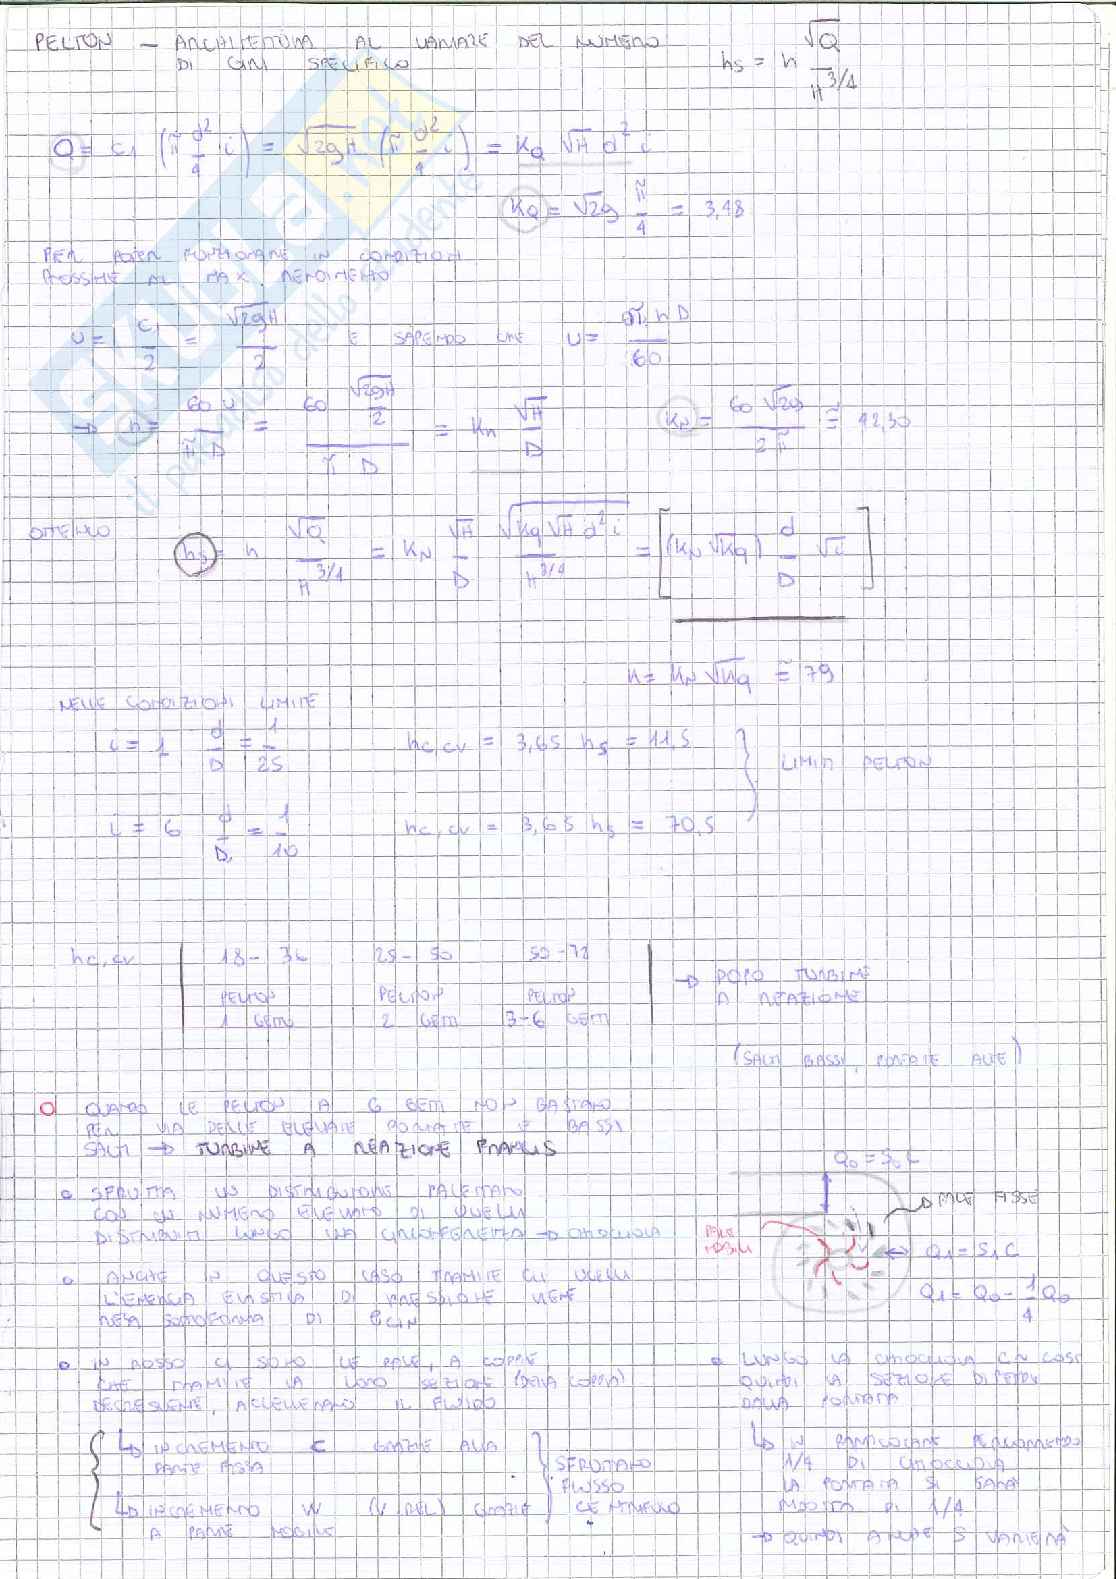 PELTON – ARCHITETTURA AL VARIARE DEL NUMERO
DI GIRI SPECIFICO
ns = n √Q / H^3/4
Q = c1 (π d²/4 i) = √2gH (π d²/4 i) = KQ √H d² i
KQ = √2g π/4 = 3,48
PER POTER FUNZIONARE IN CONDIZIONI
PROSSIME AL MAX RENDIMENTO
u = c1/2 = √2gH / 2 E SAPENDO CHE u = π n D / 60
→ n = 60 u / π D = 60 √2gH/2 / π D = Kn √H / D
KN = 60 √2g / 2 π ≅ 42,30
OTTENGO
ns = n √Q / H^3/4 = KN √H / D √KQ √H d² i / H^3/4 = [(KN √KQ) d/D √i]
K = KN √KQ ≅ 79
NELLE CONDIZIONI LIMITE
i = 1 d/D = 1/25 nc,cv = 3,65 ns = 11,5
LIMITI PELTON
i = 6 d/D = 1/10 nc,cv = 3,65 ns = 70,5
nc,cv | 18 – 36 25 – 50 50 – 72 | → DOPO TURBINE
A REAZIONE
PELTON PELTON PELTON
1 GETTO 2 GETTI 3-6 GETTI
(SALTI BASSI, PORTATE ALTE)
QUANDO LE PELTON A 6 GETTI NON BASTANO
PER VIA DELLE ELEVATE PORTATE E BASSI
SALTI → TURBINE A REAZIONE FRANCIS
SFRUTTA UN DISTRIBUTORE PALETTATO
CON UN NUMERO ELEVATO DI UGELLI
DISTRIBUITI LUNGO UNA CIRCONFERENZA → CHIOCCIOLA
Q0 = S0 C
PALE FISSE
PALE
MOBILI
Q1 = S1 C
Q1 = Q0 - 1/4 Q0
ANCHE IN QUESTO CASO TRAMITE GLI UGELLI
L'ENERGIA ELASTICA DI PRESSIONE VIENE
RESA SOTTOFORMA DI ECIN
IN ROSSO CI SONO LE PALE, A COPPIE,
CHE TRAMITE LA LORO SEZIONE (DELLA COPPIA)
DECRESCENTE, ACCELERANO IL FLUIDO
↳ INCREMENTO C GRAZIE ALLA
PARTE FISSA
↳ INCREMENTO W (V REL) GRAZIE
A PARTE MOBILE
SFRUTTANO
FLUSSO
CENTRIPETO
LUNGO LA CHIOCCIOLA C IN COST
QUINDI LA SEZIONE DIPENDE
DALLA PORTATA
↳ IN PARTICOLARE PERCORRENDO
1/4 DI CHIOCCIOLA
LA PORTATA SI SARÀ
RIDOTTA DI 1/4
→ QUINDI ANCHE S VARIERÀ